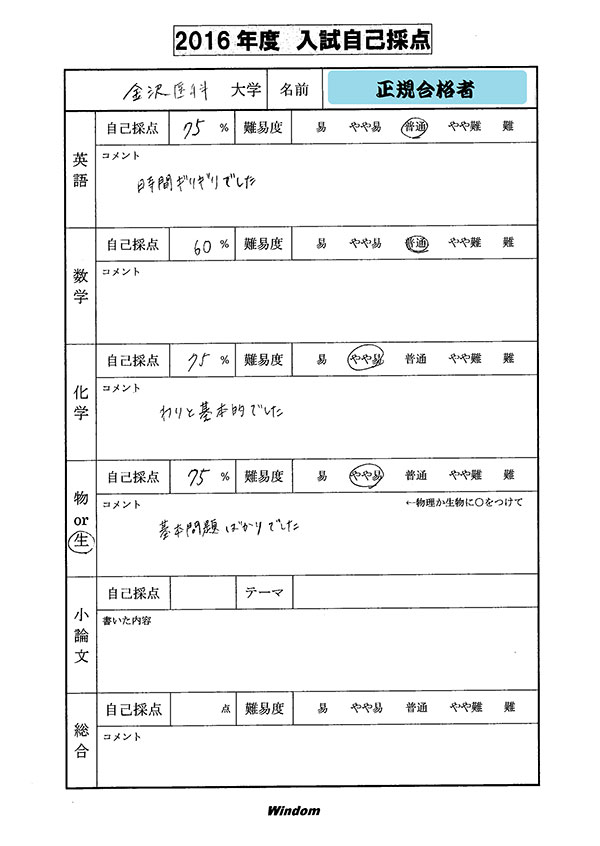 2016年度 入試自己採点
金沢医科 大学 名前 正規合格者
英語 自己採点 75 % 難易度 易 やや易 普通 やや難 難
コメント
時間ギリギリでした
数学 自己採点 60 % 難易度 易 やや易 普通 やや難 難
コメント
化学 自己採点 75 % 難易度 易 やや易 普通 やや難 難
コメント
わりと基本的でした
物or生 自己採点 75 % 難易度 易 やや易 普通 やや難 難
コメント ←物理か生物に〇をつけて
基本問題ばかりでした
小論文 自己採点 テーマ
書いた内容
総合 自己採点 点 難易度 易 やや易 普通 やや難 難
コメント
Windom